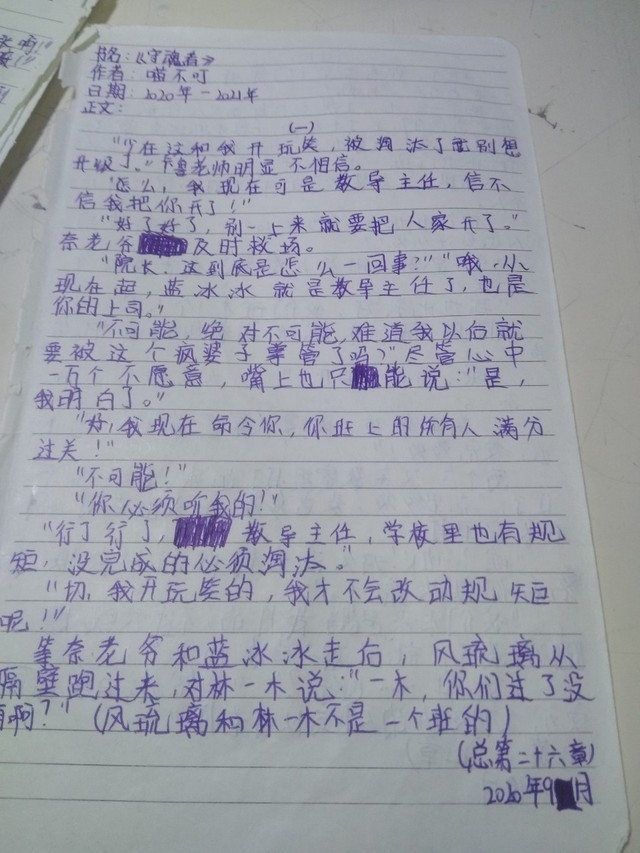 书名:《守魂者》
作者:喵不叮
日期:2020年-2021年
正文:
(一)
"少在这和我开玩笑,被淘汰了就别想
升级了。"卡鲁老师明显不相信。
"怎么,我现在可是教导主任,信不
信我把你开了!"
"好了好了,别一上来就要把人家开了。"
奈老爷及时救场。
"院长,这到底是怎么一回事?""哦,从
现在起,蓝冰冰就是教导主任了,也是
你的上司。"
"不可能,绝对不可能,难道我以后就
要被这个疯婆子掌管了吗?"尽管心中
一万个不愿意,嘴上也只能说:"是,
我明白了。"
"好,我现在命令你,你班上的所有人满分
过关!"
"不可能!"
"你必须听我的!"
"行了行了,教导主任,学校里也有规
矩,没完成的必须淘汰。"
"切,我开玩笑的,我才不会改动规矩
呢!"
等奈老爷和蓝冰冰走后,风琉璃从
隔壁跑过来,对林一木说:"一木,你们过了没
有啊?"(风琉璃和林一木不是一个班的)
(总第二十六章)
2020年9月